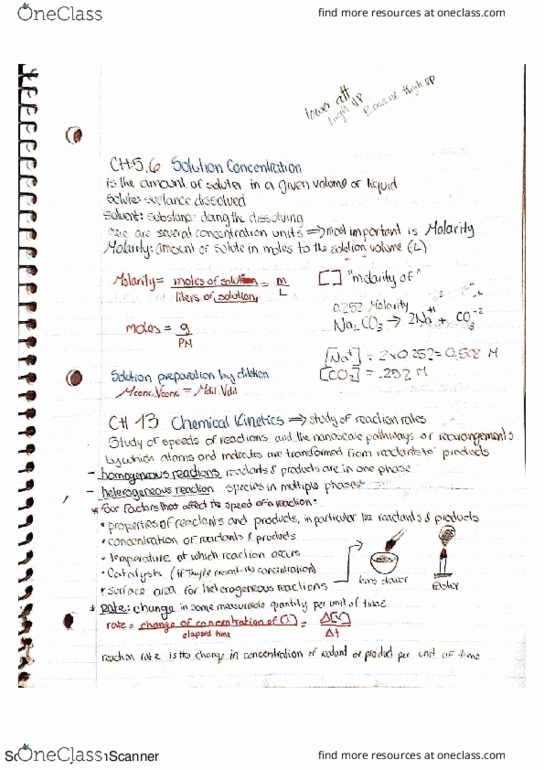 OneClass
find more resources at oneclass.com
lower att
high VP
CH.5.6 Solution Concentration
is the amount of solute in a given volume or liquid
Solute: sustance dissolved
Solvent: substance doing the dissolving
There are several concentration units ⇒ most important is Molarity
Molarity: amount of solute in moles to the solution volume (L)
Molarity = moles of solution = m
liters of solution, L
[ ] "molarity of"
0.252 Molarity
Na₂CO₃ → 2Na⁺¹ + CO₃⁻²
moles = g
PM
[Na⁺] = 2 x 0.252 = 0.508 M
[CO₃] = .252 M
Solution preparation by dilution
Mconc.Vconc = Mdil.Vdil
CH 13 Chemical Kinetics ⇒ study of reaction rates
Study of speeds of reactions, and the nanoscale pathways or rearrangements
by which atoms and molecules are transformed from reactants to products
- homogeneous reactions reactants & products are in one phase
- heterogeneous reaction species in multiple phases
* Four Factors that affect the speed of a reaction:
• properties of reactants and products, in particular the reactants & products
• concentration of reactants & products
• temperature at which reaction occurs
• Catalysts (if they're present the concentration)
• surface area for heterogeneous reactions
slower
faster
* Rate: change in some measurable quantity per unit of time
rate = change of concentration of ( ) = Δ[ ]
elapsed time Δt
reaction rate is the change in concentration of reactant or product per unit of time
OneClass
Scanner
find more resources at oneclass.com